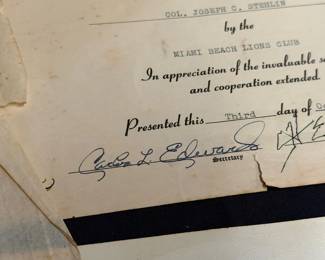 COL. JOSEPH C. STEHLIN
by the
MIAMI BEACH LIONS CLUB
In appreciation of the invaluable
and cooperation extended.
Presented this Third day of
L. Edwards
Secretary